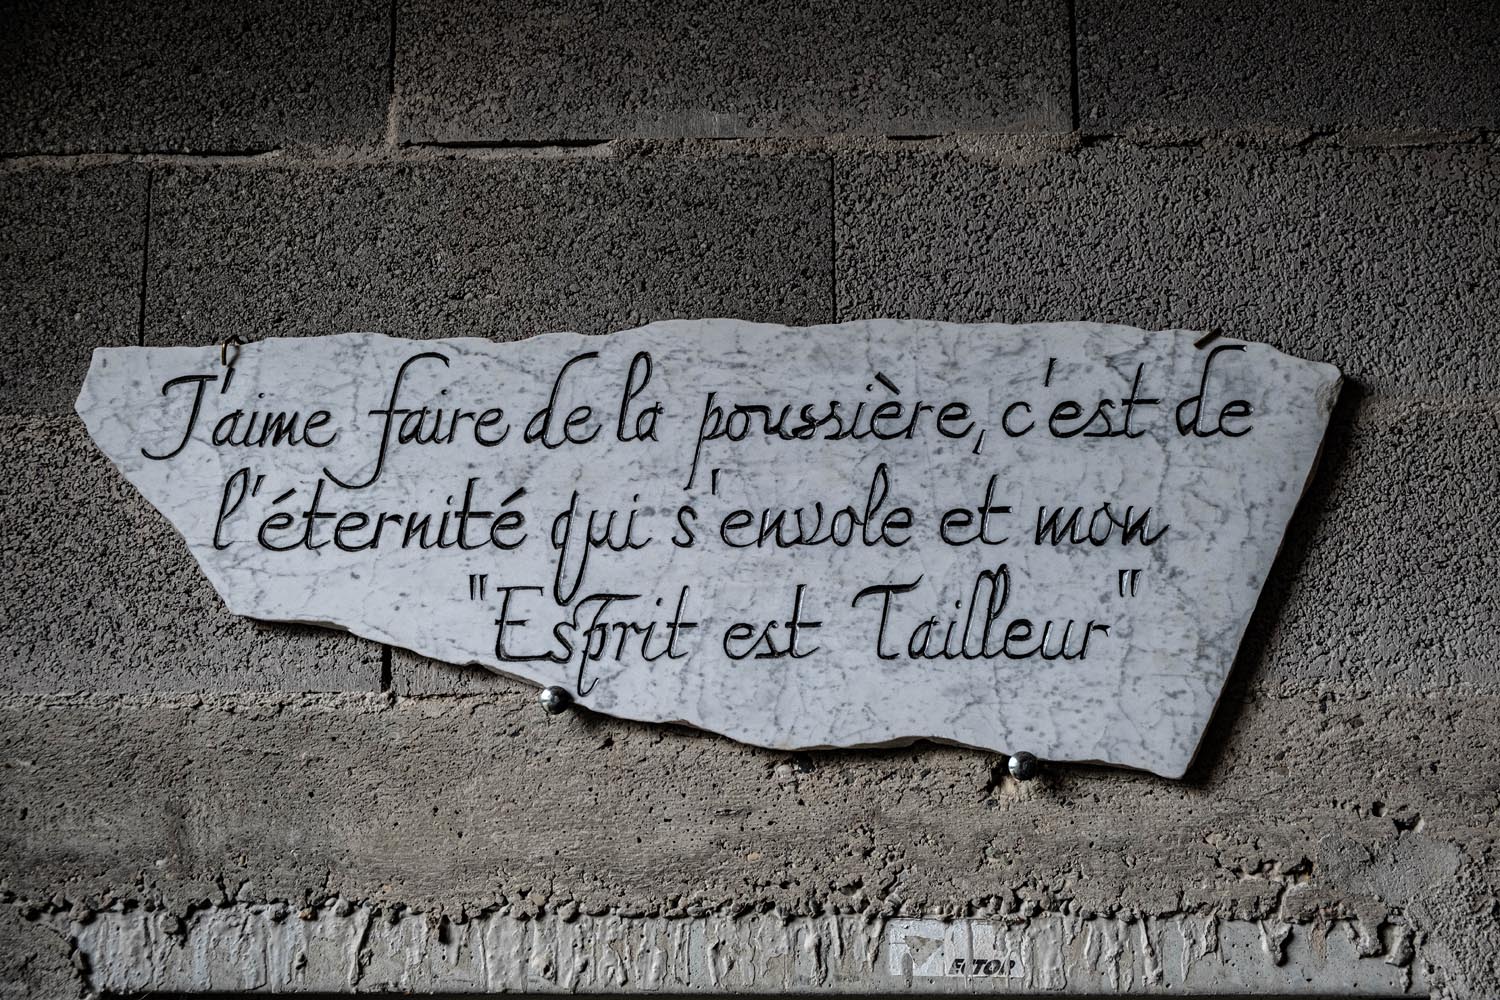 J'aime faire de la poussière, c'est de
l'éternité qui s'envole et mon
"Esprit est Tailleur"